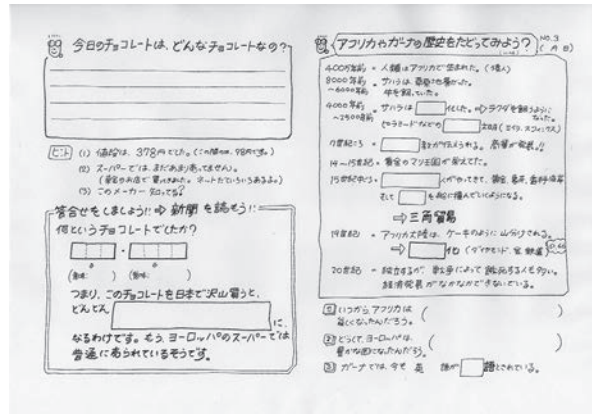 今日のチョコレートは、どんなチョコレートなの?
ヒント (1) 値段は、378円でした。(この間のは、98円です。)
(2) スーパーでは、まだあまり売ってません。
(3) このメーカー知ってる?
答合せをしましょう!! ⇒ 新聞を読もう!!
何というチョコレートでしたか?
(意味: ) (意味: )
つまり、このチョコレートを日本で沢山買うと、
どんどん に、
なるわけです。もう、ヨーロッパのスーパーでは
普通に売られているそうです。
アフリカやガーナの歴史をたどってみよう? NO.3
( 月 日)
400万年前 = 人類はアフリカで生まれた。(猿人)
8000年前 = サハラは草原で
~6000年前 牛を飼っていた。
4000年前 = サハラは 化した。⇒ ラクダを飼うように
~2500年前 なった。
ピラミッドなどの 文明 (エイプト、スフィンクス)
7世紀ごろ 教が伝えられる。商業が発展!!
14~15世紀 = 黄金のマリ王国が栄えてた。
15世紀中ごろ 人がやってきて、黄金、象牙、香料
そして を船に積んでいくようになる。
⇒ 三角貿易
19世紀 = アフリカ大陸は、ケーキのように山分けされる。
⇒ 化 (ダイヤモンド、金、鉄道)
20世紀 = 独立するが、戦争によって難民する人も多い。
経済発展がなかなかできないでいる。
① いつから、アフリカは (
貧しくなったんだろう。 )
② どうして、ヨーロッパは、 (
豊かな国になったんだろう。 )
③ ガーナでは、今も 英 語が 語とされている。